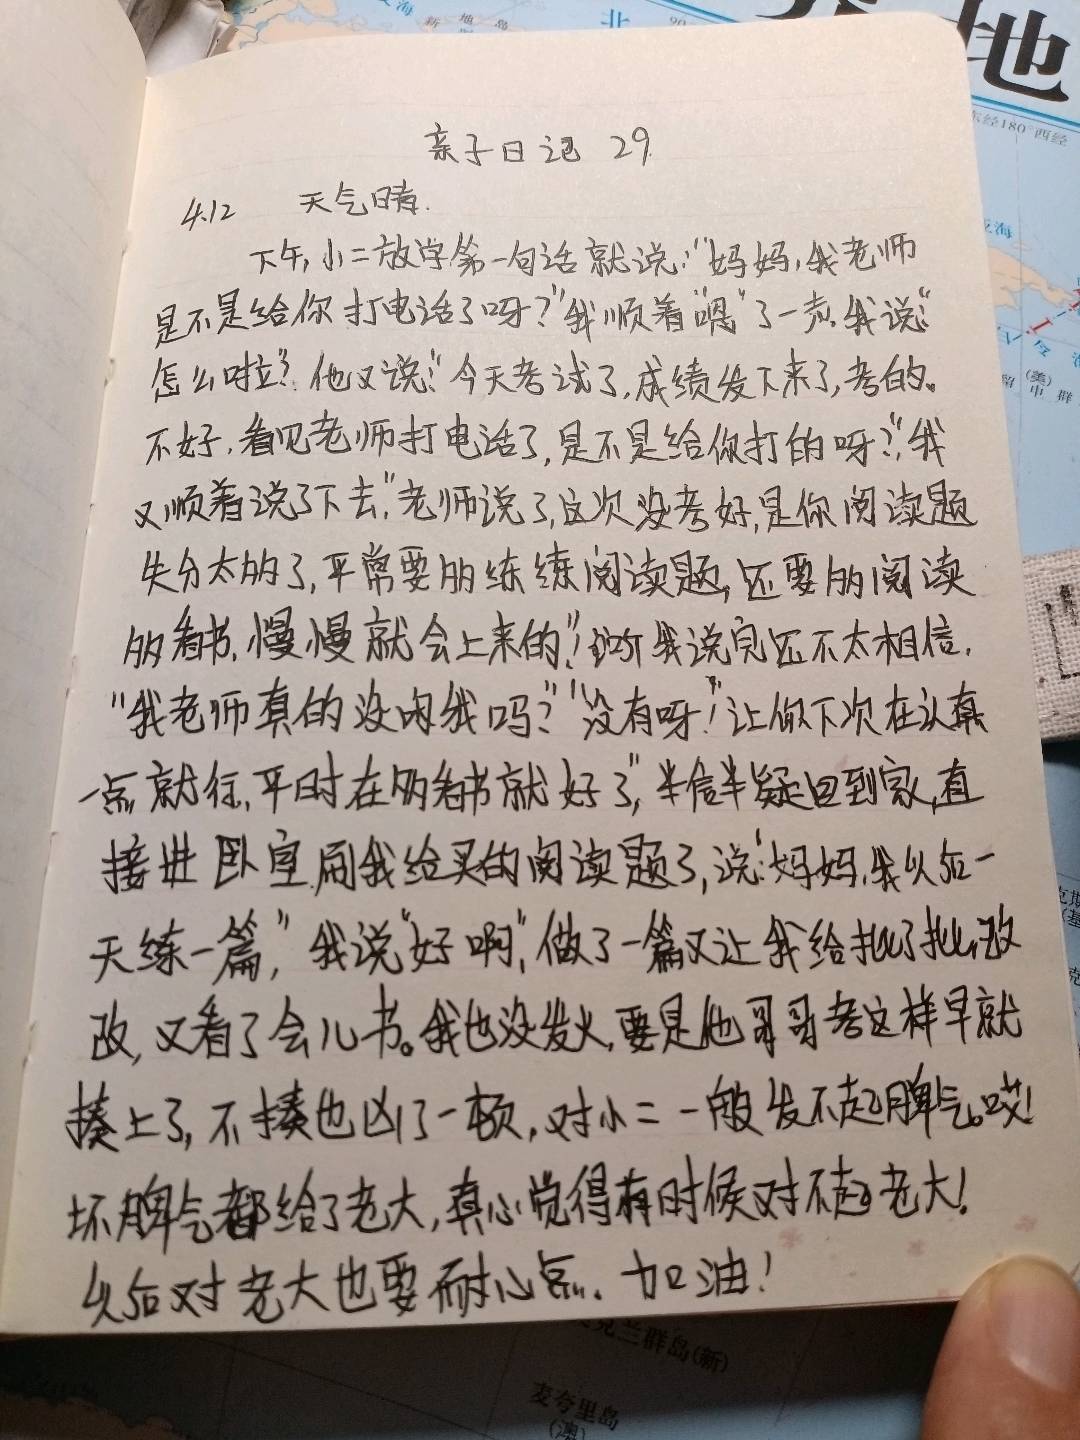 北
地
东经180°西经
(美)
中
群
亲子日记 29
4.12 天气晴.
下午,小二放学第一句话就说:"妈妈,我老师
是不是给你打电话了呀?"我顺着"嗯"了一声.我说:"
怎么啦"?.他又说:"今天考试了,成绩发下来了,考的。
不好,看见老师打电话了,是不是给你打的呀?",我
又顺着说了下去,"老师说了,这次没考好,是你阅读题
失分太多了,平常要多练练阅读题,还要多阅读
多看书,慢慢就会上来的"!听我说完还不太相信.
"我老师真的没凶我吗?""没有呀!"让你下次在认真
一点就行,平时在多看书就好了",半信半疑回到家,直
接进卧室刷我给买的阅读题了,说:"妈妈,我以后一
天练一篇",我说"好啊",做了一篇又让我给批了批,改
改,又看了会儿书。我也没发火,要是他哥哥考这样早就
揍上了,不揍也凶了一顿,对小二一般发不起脾气。哎!
坏脾气都给了老大,真心觉得有时候对不起老大!
以后对老大也要耐心点.加油!
克兰群岛(新)
麦夸里岛
(澳)